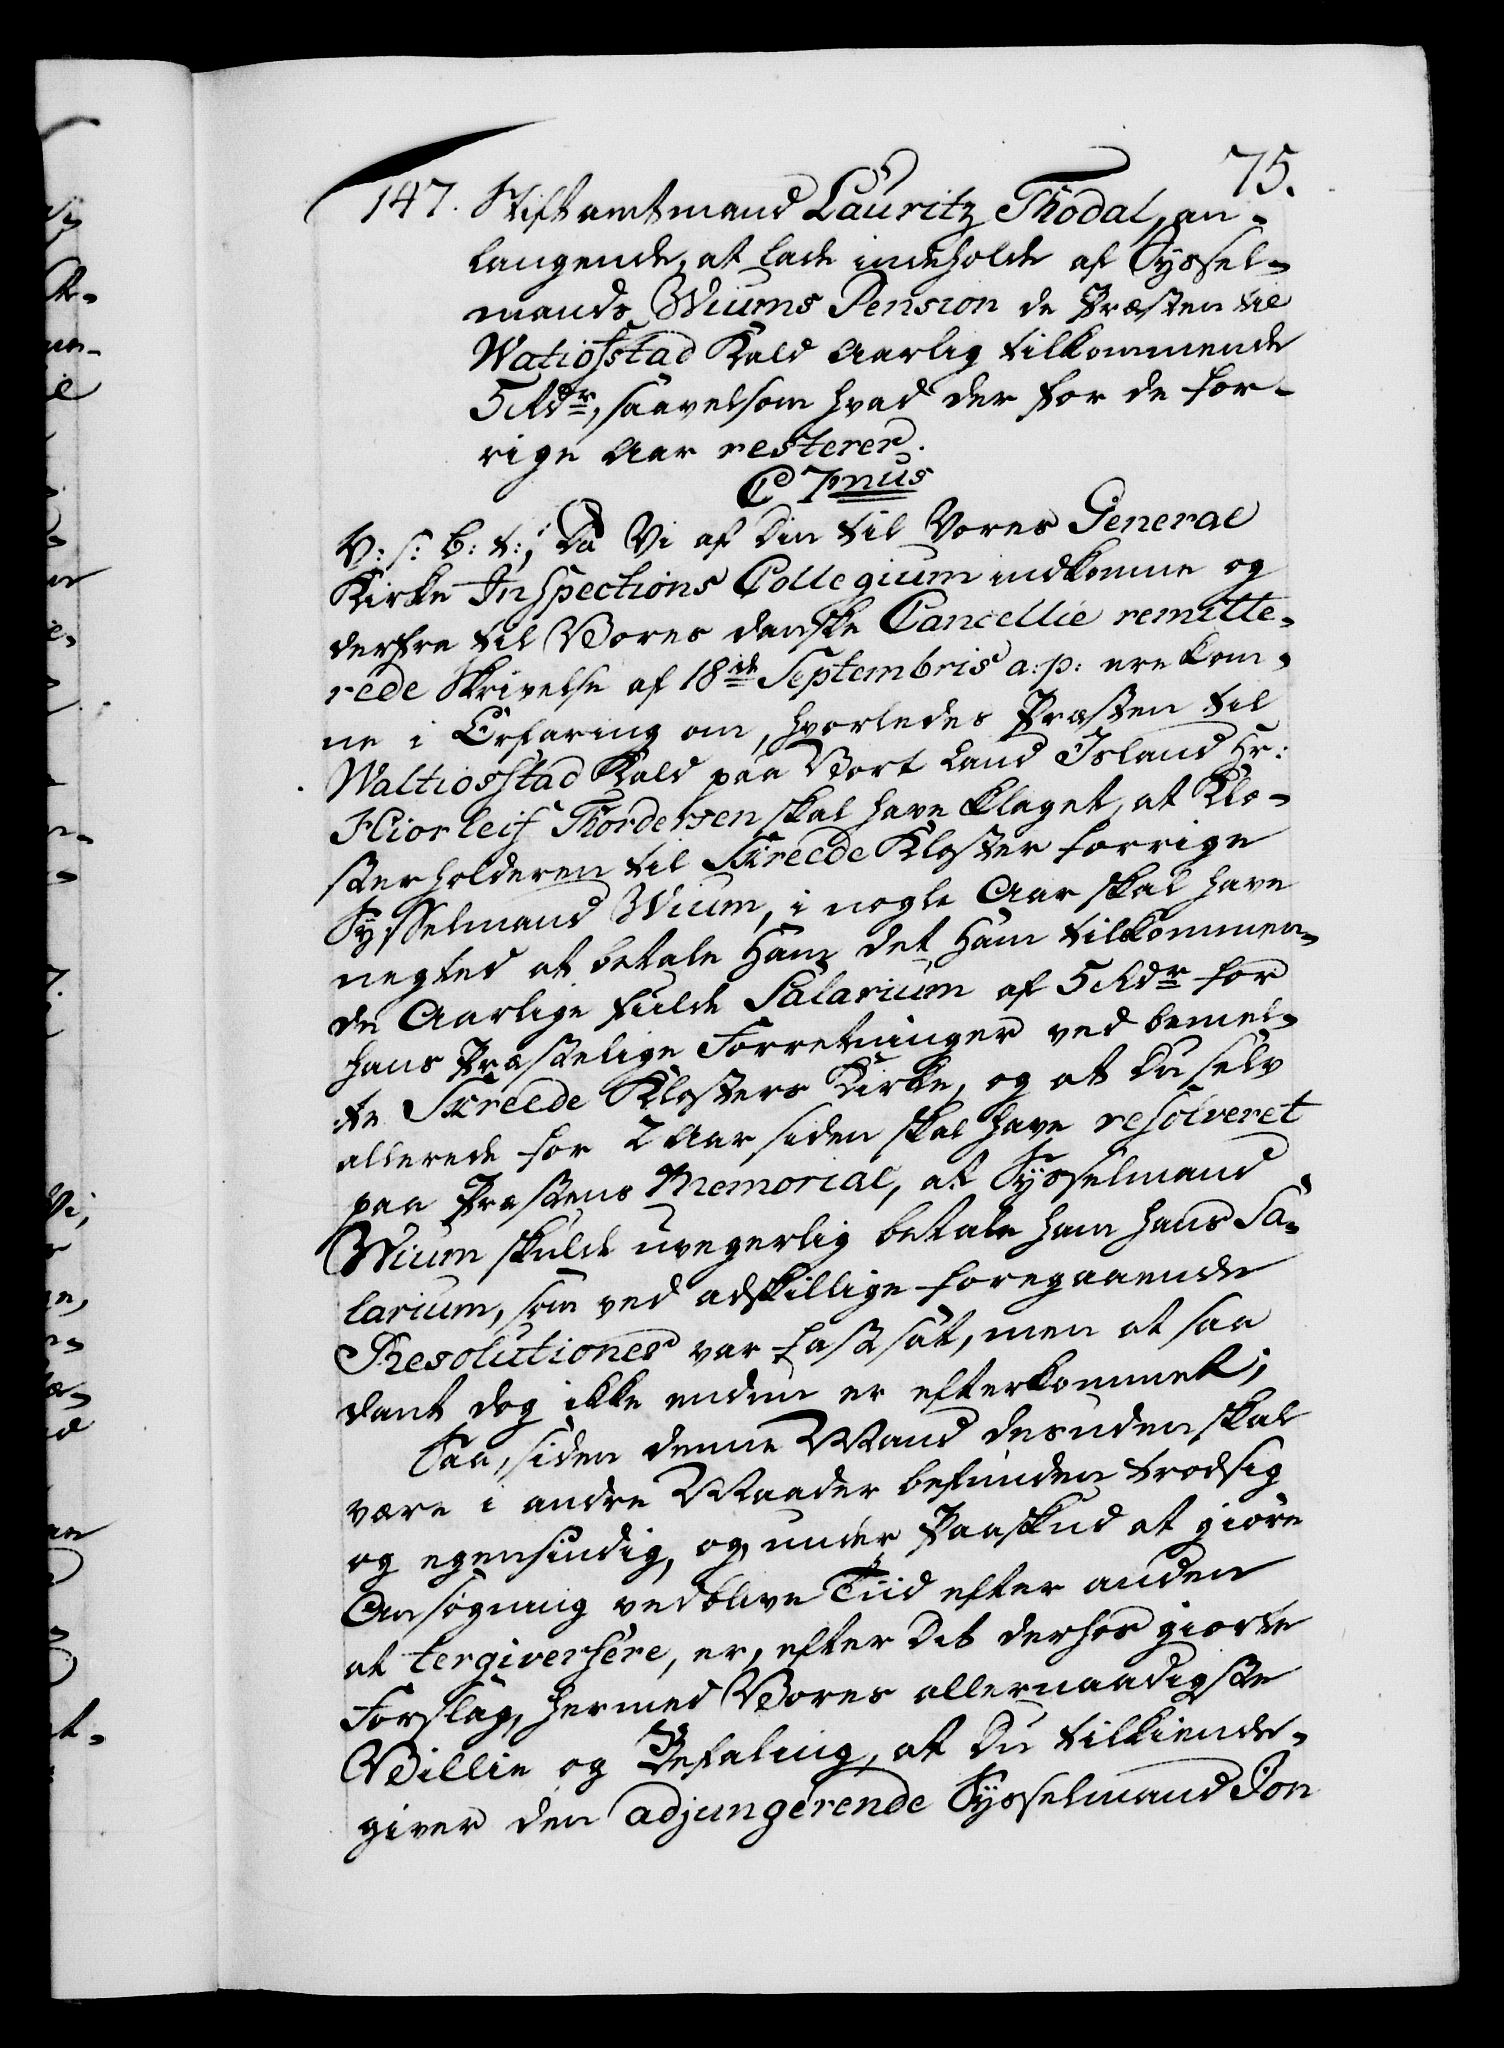 75.
147. Stiftamtmand Lauritz Thodal, an-
langende, at lade indeholde af Syssel-
mands Wiums Pension de Præsten til
Watiosstad Kald Aarlig tilkommende
5 Rdr, saavelsom hvad der for de for-
rige Aar resterer.
C 7mus
V: s: b: t:, Da Vi af Din til Vores General
Kirke Inspections Collegium indkomne og
derfra til Vores danske Cancellie remitte-
rede Skrivelse af 18de Septembris a: p: ere kom-
ne i Erfaring om, hvorledes Præsten til
Waltiosstad Kald paa Vort Land Island Hr:
Hiorleif Thordersen skal have klaget, at Klo-
sterholderen til Skreede Kloster forrige
Sysselmand Wium, i nogle Aar skal have
negted at betale ham det ham tilkommen-
de Aarlige fulde Salarium af 5 Rdr for
hans Præstelige Forretninger ved bemel-
te Skreede Klosters Kirke, og at Du selv
allerede for 2 Aar siden skal have resolveret
paa Præstens Memorial, at Sysselmand
Wium skulde uvegerlig betale ham hans Sa-
larium, som ved adskillige foregaaende
Resolutioner var fastsat, men at saa
dant dog ikke endnu er efterkommet;
Saa, siden denne Mand desuden skal
være i andre Maader befunden trodsig
og egensindig, og under Paaskud at giøre
Ansøgning vedblive Tiid efter anden
at tergiversere, er, efter Dit derhos giorte
Forslag, hermed Vores allernaadigste
Villie og Befaling, at Du tilkiende-
giver den adjungerende Sysselmand Jon